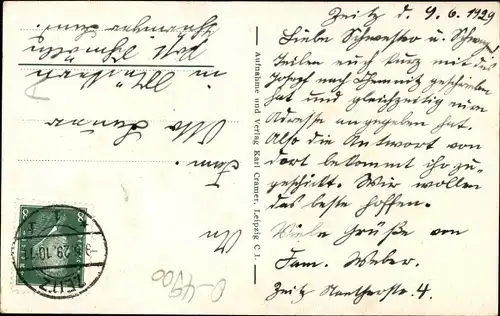 Zeitz d. 9.6.1929
Liebe Schwester u. Schwager
Teilen euch kurz mit das
Josef nach Chemnitz geschrieben
hat und gleichzeitig eure
Adresse angegeben hat.
Also die Antwort von
dort bekommt ihr zu-
geschickt. Wir wollen
das beste hoffen.
Viele Grüße von
Fam. Weber.
Zeitz 4.
Aufnahme und Verlag Karl Cramer, Leipzig C 1.
An
Fam.
Otto
in
Post Schmölln
8 8
ZEITZ
0-4900